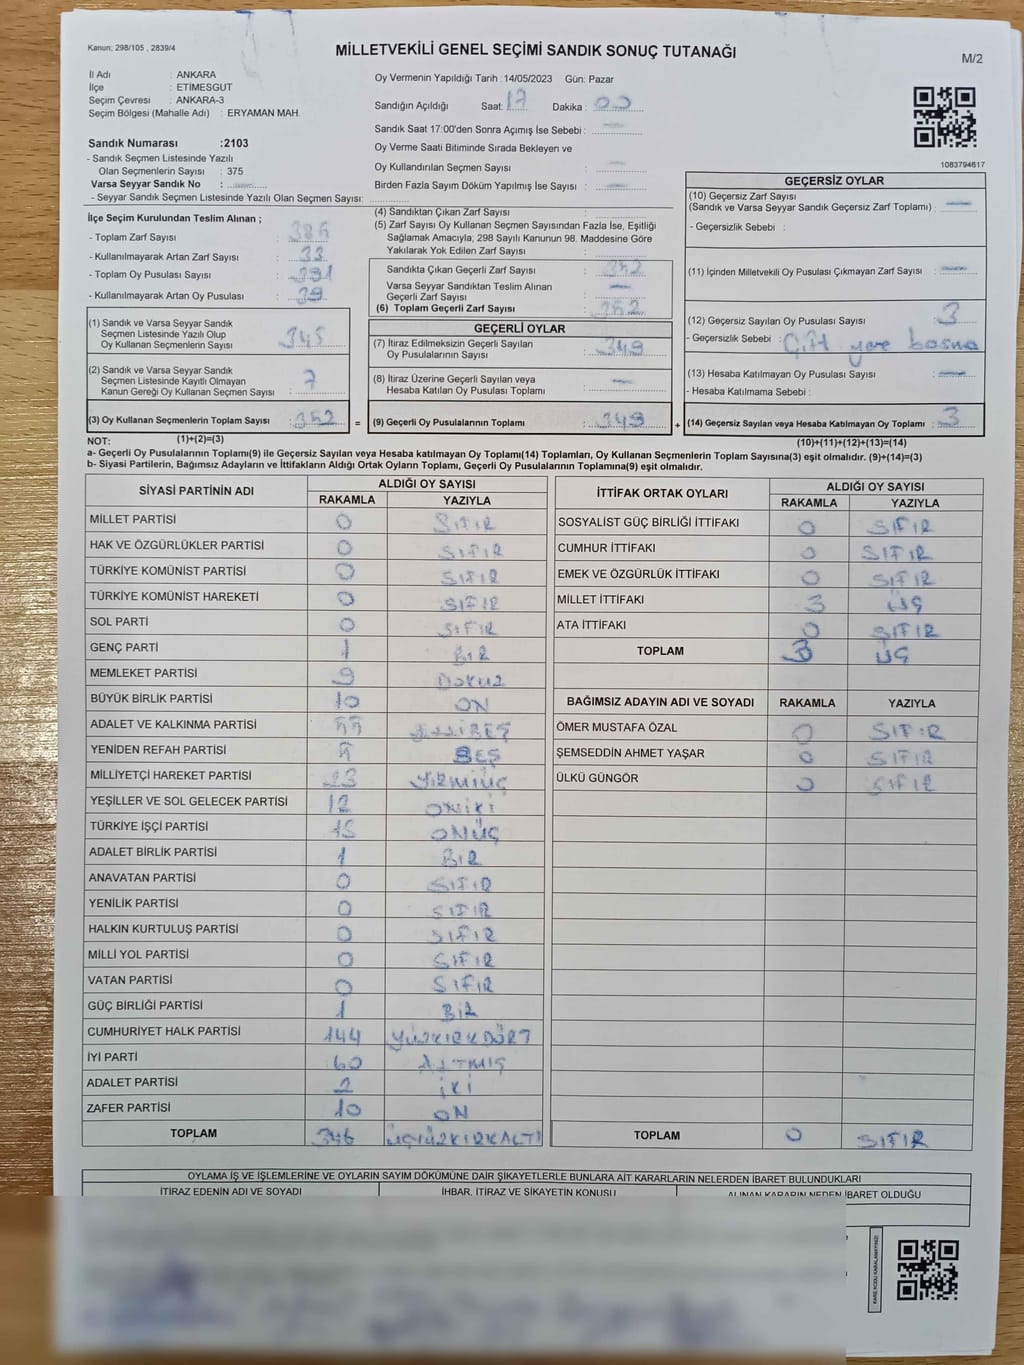 Kanun: 298/105 , 2839/4
MİLLETVEKİLİ GENEL SEÇİMİ SANDIK SONUÇ TUTANAĞI
M/2
İl Adı : ANKARA
İlçe : ETİMESGUT
Seçim Çevresi : ANKARA-3
Seçim Bölgesi (Mahalle Adı) : ERYAMAN MAH.
Oy Vermenin Yapıldığı Tarih : 14/05/2023 Gün: Pazar
Sandığın Açıldığı Saat: 17 Dakika : 00
Sandık Saat 17:00'den Sonra Açımış İse Sebebi : —
Oy Verme Saati Bitiminde Sırada Bekleyen ve
Oy Kullandırılan Seçmen Sayısı : —
Birden Fazla Sayım Döküm Yapılmış İse Sayısı : —
1083794617
Sandık Numarası :2103
- Sandık Seçmen Listesinde Yazılı
Olan Seçmenlerin Sayısı : 375
Varsa Seyyar Sandık No : —
- Seyyar Sandık Seçmen Listesinde Yazılı Olan Seçmen Sayısı:
İlçe Seçim Kurulundan Teslim Alınan ;
- Toplam Zarf Sayısı : 385
- Kullanılmayarak Artan Zarf Sayısı : 33
- Toplam Oy Pusulası Sayısı : 391
- Kullanılmayarak Artan Oy Pusulası : 39
(1) Sandık ve Varsa Seyyar Sandık
Seçmen Listesinde Yazılı Olup
Oy Kullanan Seçmenlerin Sayısı : 345
(2) Sandık ve Varsa Seyyar Sandık
Seçmen Listesinde Kayıtlı Olmayan
Kanun Gereği Oy Kullanan Seçmen Sayısı : 7
(3) Oy Kullanan Seçmenlerin Toplam Sayısı : 352
(4) Sandıktan Çıkan Zarf Sayısı :
(5) Zarf Sayısı Oy Kullanan Seçmen Sayısından Fazla İse, Eşitliği
Sağlamak Amacıyla; 298 Sayılı Kanunun 98. Maddesine Göre
Yakılarak Yok Edilen Zarf Sayısı :
Sandıkta Çıkan Geçerli Zarf Sayısı : 352
Varsa Seyyar Sandıktan Teslim Alınan
Geçerli Zarf Sayısı : —
(6) Toplam Geçerli Zarf Sayısı : 352
GEÇERLİ OYLAR
(7) İtiraz Edilmeksizin Geçerli Sayılan
Oy Pusulalarının Sayısı : 349
(8) İtiraz Üzerine Geçerli Sayılan veya
Hesaba Katılan Oy Pusulası Toplamı : —
= (9) Geçerli Oy Pusulalarının Toplamı : 349
GEÇERSİZ OYLAR
(10) Geçersiz Zarf Sayısı
(Sandık ve Varsa Seyyar Sandık Geçersiz Zarf Toplamı) : —
- Geçersizlik Sebebi :
(11) İçinden Milletvekili Oy Pusulası Çıkmayan Zarf Sayısı : —
(12) Geçersiz Sayılan Oy Pusulası Sayısı : 3
- Geçersizlik Sebebi : Çift yere basma
(13) Hesaba Katılmayan Oy Pusulası Sayısı : —
- Hesaba Katılmama Sebebi :
+ (14) Geçersiz Sayılan veya Hesaba Katılmayan Oy Toplamı : 3
NOT: (1)+(2)=(3)
(10)+(11)+(12)+(13)=(14)
a- Geçerli Oy Pusulalarının Toplamı(9) ile Geçersiz Sayılan veya Hesaba Katılmayan Oy Toplamı(14) Toplamları, Oy Kullanan Seçmenlerin Toplam Sayısına(3) eşit olmalıdır. (9)+(14)=(3)
b- Siyasi Partilerin, Bağımsız Adayların ve İttifakların Aldığı Ortak Oyların Toplamı, Geçerli Oy Pusulalarının Toplamına(9) eşit olmalıdır.
SİYASİ PARTİNİN ADI ALDIĞI OY SAYISI
RAKAMLA YAZIYLA
MİLLET PARTİSİ 0 SIFIR
HAK VE ÖZGÜRLÜKLER PARTİSİ 0 SIFIR
TÜRKİYE KOMÜNİST PARTİSİ 0 SIFIR
TÜRKİYE KOMÜNİST HAREKETİ 0 SIFIR
SOL PARTİ 0 SIFIR
GENÇ PARTİ 1 BİR
MEMLEKET PARTİSİ 9 DOKUZ
BÜYÜK BİRLİK PARTİSİ 10 ON
ADALET VE KALKINMA PARTİSİ 55 ELLİBEŞ
YENİDEN REFAH PARTİSİ 5 BEŞ
MİLLİYETÇİ HAREKET PARTİSİ 23 YİRMİÜÇ
YEŞİLLER VE SOL GELECEK PARTİSİ 12 ONİKİ
TÜRKİYE İŞÇİ PARTİSİ 13 ONÜÇ
ADALET BİRLİK PARTİSİ 1 BİR
ANAVATAN PARTİSİ 0 SIFIR
YENİLİK PARTİSİ 0 SIFIR
HALKIN KURTULUŞ PARTİSİ 0 SIFIR
MİLLİ YOL PARTİSİ 0 SIFIR
VATAN PARTİSİ 0 SIFIR
GÜÇ BİRLİĞİ PARTİSİ 1 BİR
CUMHURİYET HALK PARTİSİ 144 YÜZKIRKDÖRT
İYİ PARTİ 60 ALTMIŞ
ADALET PARTİSİ 2 İKİ
ZAFER PARTİSİ 10 ON
TOPLAM 346 ÜÇYÜZKIRKALTI
İTTİFAK ORTAK OYLARI ALDIĞI OY SAYISI
RAKAMLA YAZIYLA
SOSYALİST GÜÇ BİRLİĞİ İTTİFAKI 0 SIFIR
CUMHUR İTTİFAKI 0 SIFIR
EMEK VE ÖZGÜRLÜK İTTİFAKI 0 SIFIR
MİLLET İTTİFAKI 3 ÜÇ
ATA İTTİFAKI 0 SIFIR
TOPLAM 3 ÜÇ
BAĞIMSIZ ADAYIN ADI VE SOYADI RAKAMLA YAZIYLA
ÖMER MUSTAFA ÖZAL 0 SIFIR
ŞEMSEDDİN AHMET YAŞAR 0 SIFIR
ÜLKÜ GÜNGÖR 0 SIFIR
TOPLAM 0 SIFIR
OYLAMA İŞ VE İŞLEMLERİNE VE OYLARIN SAYIM DÖKÜMÜNE DAİR ŞİKAYETLERLE BUNLARA AİT KARARLARIN NELERDEN İBARET BULUNDUKLARI
İTİRAZ EDENİN ADI VE SOYADI İHBAR, İTİRAZ VE ŞİKAYETİN KONUSU ALINAN KARARIN NEDEN İBARET OLDUĞU